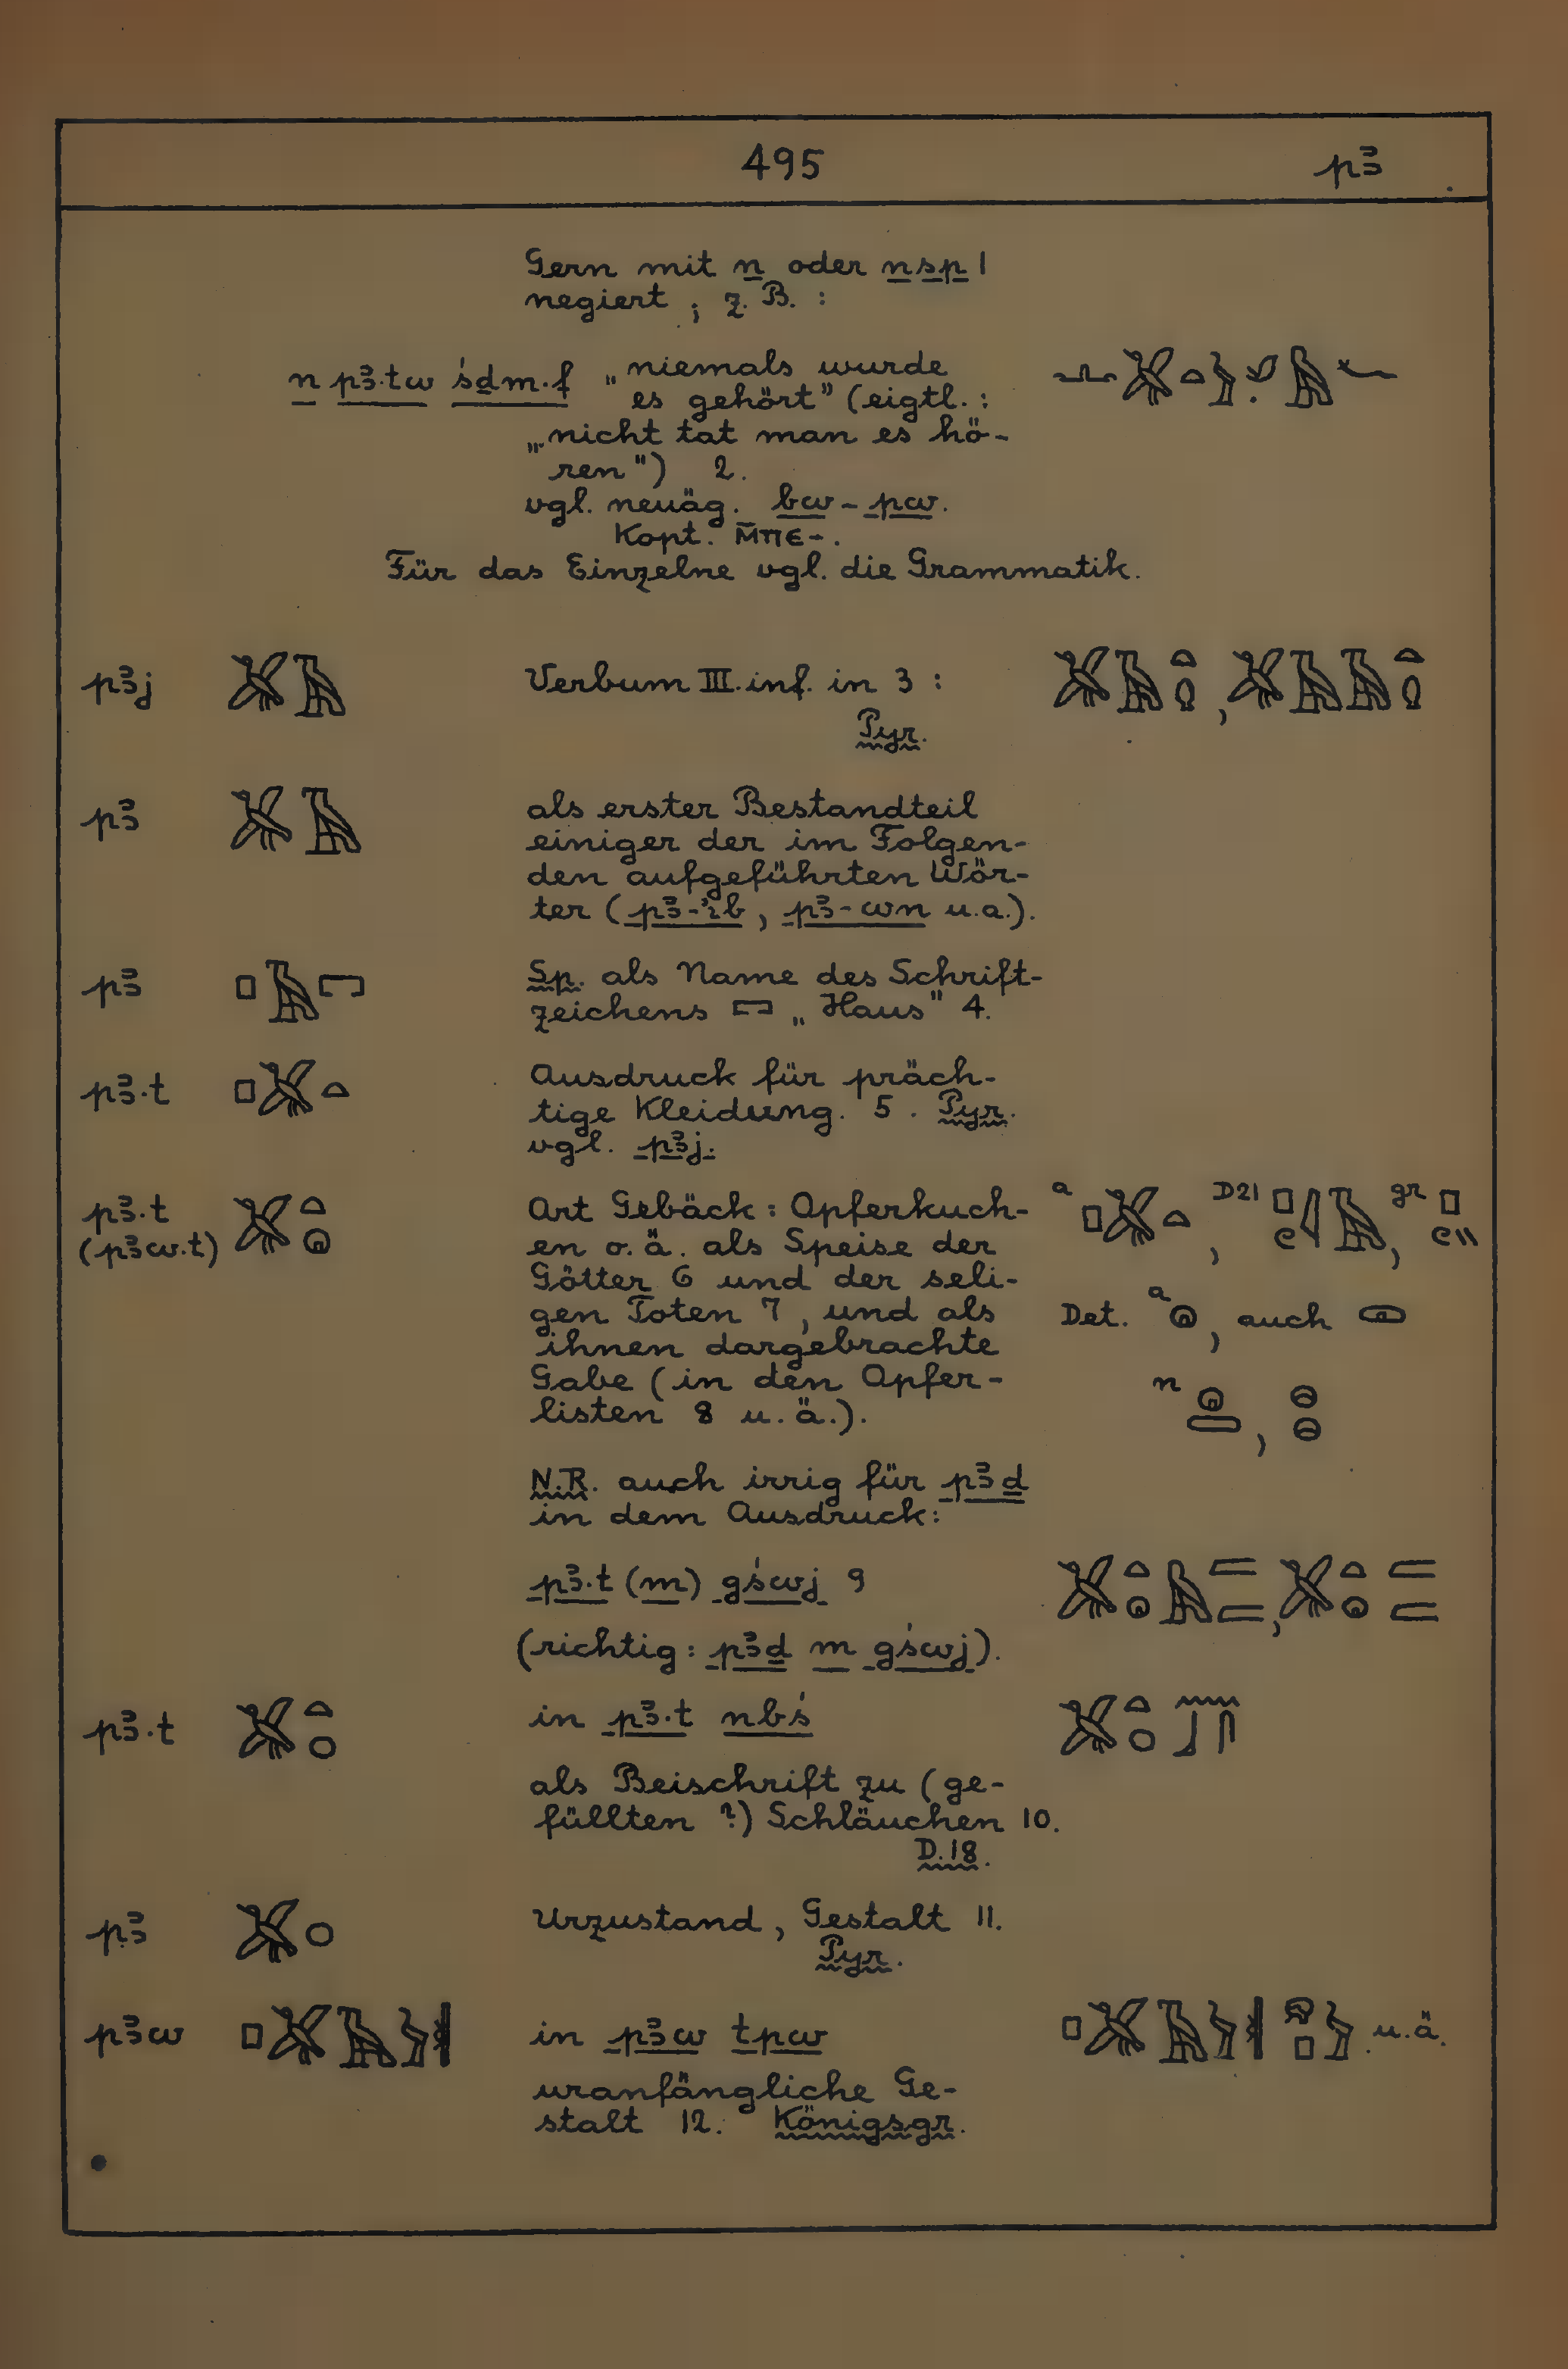 495 pꜣ
Gern mit n oder n sp 1
negiert ; z. B. :
n pꜣ.tw śḏm.f „niemals wurde
es gehört" (eigtl. :
„nicht tat man es hö-
ren") 2.
vgl. neuäg. bw-pw.
Kopt. ⲙ̄ⲡⲉ-.
Für das Einzelne vgl. die Grammatik.
pꜣj Verbum III. inf. in 3 :
Pyr.
pꜣ als erster Bestandteil
einiger der im Folgen-
den aufgeführten Wör-
ter (pꜣ-ỉb, pꜣ-wn u.a.).
pꜣ Sp. als Name des Schrift-
zeichens 𓉐 „Haus" 4.
pꜣ.t Ausdruck für präch-
tige Kleidung. 5. Pyr.
vgl. pꜣj.
pꜣ.t Art Gebäck : Opferkuch- a D21 gr
(pꜣw.t) en o. ä. als Speise der
Götter 6 und der seli-
gen Toten 7, und als Det. a , auch
ihnen dargebrachte
Gabe (in den Opfer- n
listen 8 u. ä.).
N.R. auch irrig für pꜣḏ
in dem Ausdruck :
pꜣ.t (m) gśwj 9
(richtig : pꜣḏ m gśwj).
pꜣ.t in pꜣ.t nbś
als Beischrift zu (ge-
füllten ?) Schläuchen 10.
D. 18.
pꜣ Urzustand, Gestalt 11.
Pyr.
pꜣw in pꜣw tpw u.ä.
uranfängliche Ge-
stalt 12. Königsgr.